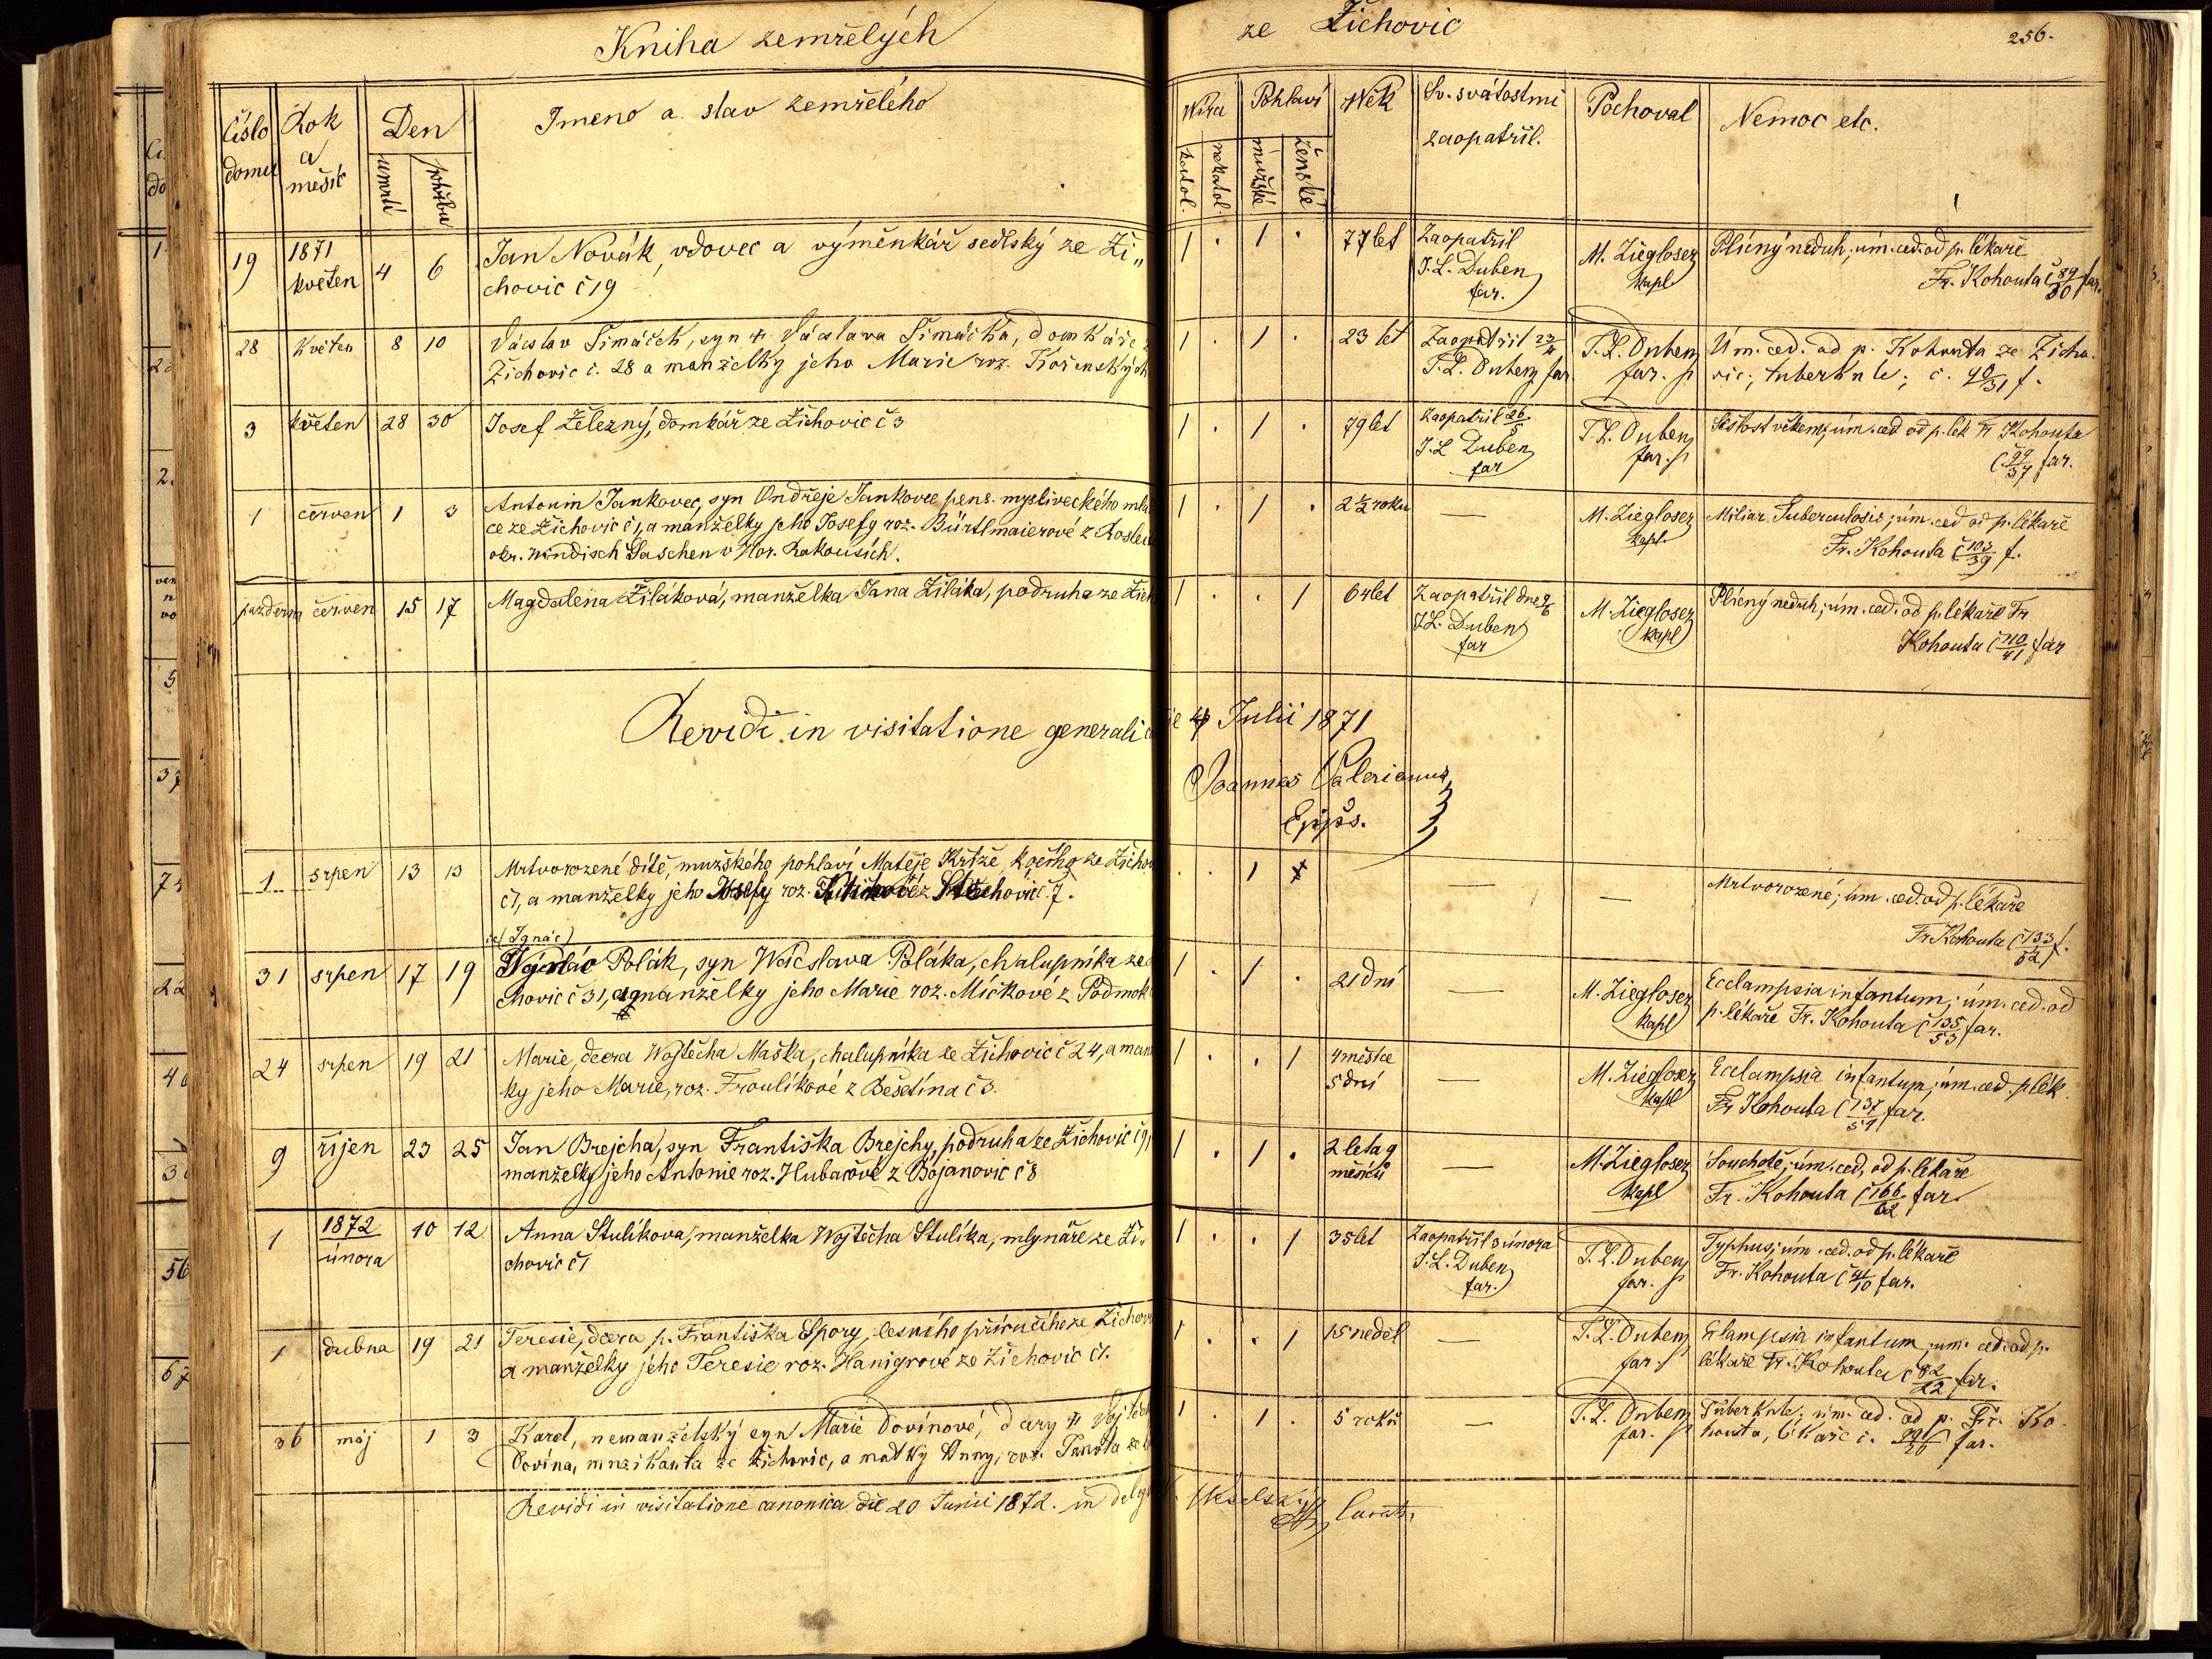 Kniha zemřelých
ze Žichovic
256.
číslo domu
Rok a měsíc
Den
úmrtí
pohřbu
Jmeno a stav zemřelého
Wíra
katol.
nekatol.
Pohlaví
mužské
ženské
Wěk
Sv. svátostmi zaopatřil.
Pochoval
Nemoc etc.
19 1871 květen 4 6 Jan Novák, vdovec a výměnkář sedlský ze Ži„
chovic č 19
1 . 1 . 77 let Zaopatřil
J. L. Duben
far.
M. Ziegloser
kapl
Plícný neduh; úm. ced. od p. lékaře
Fr. Kohouta č 89/30 far.
28 Květen 8 10 Václav Šimáček, syn † Václava Šimáčka, domkáře z
Žichovic č. 28 a manželky jeho Marie roz. Kořenských
1 . 1 . 23 let Zaopatřil 23/4
J. L. Duben far.
J. L. Duben
far.
Úm. ced. od p. Kohouta ze Žicho-
vic; tuberkule; č. 90/31 f.
3 květen 28 30 Josef Železný, domkář ze Žichovic č 3
1 . 1 . 79 let Zaopatřil 26/5
J. L. Duben
far
J. L. Duben
far.
Sešlost věkem; úm. ced od p. lék Fr Kohouta
č 99/37 far.
1 červen 1 3 Antonin Jankovec, syn Ondřeje Jankovce pens. mysliveckého mlád
ce ze Žichovic č 1, a manželky jeho Josefy roz. Bürtlmaierové z
okr. Windisch Gaschen v Hor. Rakousích.
1 . 1 . 2 ½ roku —
M. Ziegloser
kapl.
Miliar. Tuberculosis; úm. ced od p. lékaře
Fr. Kohouta č 103/39 f.
pazderna červen 15 17 Magdalena Žiláková, manželka Jana Žiláka, podruha ze Žich
1 . . 1 64 let Zaopatřil dne 9/6
J. L. Duben
far
M. Ziegloser
kapl
Plícný neduh; úm. ced. od p. lékaře Fr
Kohouta č 110/41 far
Revidi in visitatione generali die 4 Julii 1871
Joannes Valerianus
Eppus.
1 srpen 13 13 Mrtvorozené dítě, mužského pohlaví Matěje Krtze, kočího ze Žichov
č 1, a manželky jeho Josefy roz.
. . 1 — —
Mrtvorozené; úm. ced. od p. lékaře
Fr Kohouta č 133/52 f.
(Ignác)
31 srpen 17 19 Polák, syn Wácslava Poláka, chalupníka ze
chovic č 31, a manželky jeho Marie roz. Míčkové z Podmok
1 . 1 . 21 dní —
M. Ziegloser
kapl
Ecclampsia infantum; úm. ced. od
p. lékaře Fr. Kohouta č 135/53 far.
24 srpen 19 21 Marie, dcera Wojtěcha Maška, chalupníka ze Žichovic č 24, a man
ky jeho Marie, roz. Froulíkové z Bešetína č 3.
1 . . 1 4 měsíce
5 dní —
M. Ziegloser
kapl
Ecclampsia infantum; úm. ced. p. lék.
Fr Kohouta č 137/54 far.
9 říjen 23 25 Jan Brejcha, syn Františka Brejchy, podruha ze Žichovic č 9,
manželky jeho Antonie roz. Hubačové z Bojanovic č 8
1 . 1 . 2 leta 9
měsíců —
M. Ziegloser
kapl
Souchotě; úm. ced. od p. lékaře
Fr. Kohouta č 166/62 far.
1 1872 února 10 12 Anna Stulíkova, manželka Wojtěcha Stulíka, mlynáře ze Ži„
chovic č 1
1 . . 1 35 let Zaopatřil 3 února
J. L. Duben
far.
J. L. Duben
far.
Typhus; úm. ced. od p. lékaře
Fr. Kohouta č 41/10 far.
1 dubna 19 21 Teresie, dcera p. Františka Spory, lesního příručího ze Žichovi
a manželky jeho Teresie roz. Hanigrové ze Žichovic č 1.
1 . . 1 15 neděl —
J. L. Duben
far.
Eklampsia infantum, um. ced. od p.
lékaře Fr. Kohouta č 82/22 far.
36 máj 1 3 Karel, nemanželský syn Marie Dovínové, dcery † Vojtěch
Dovína, muzikanta ze Žichovic, a matky Anny, roz. Janota ze
1 . 1 . 5 roků —
J. L. Duben
far.
Tuberkule, úm. ced. od p. Fr. Ko-
houta, lékaře č. 99/26 far.
Revidi in visitatione canonica die 20 Junii 1872. in deleg